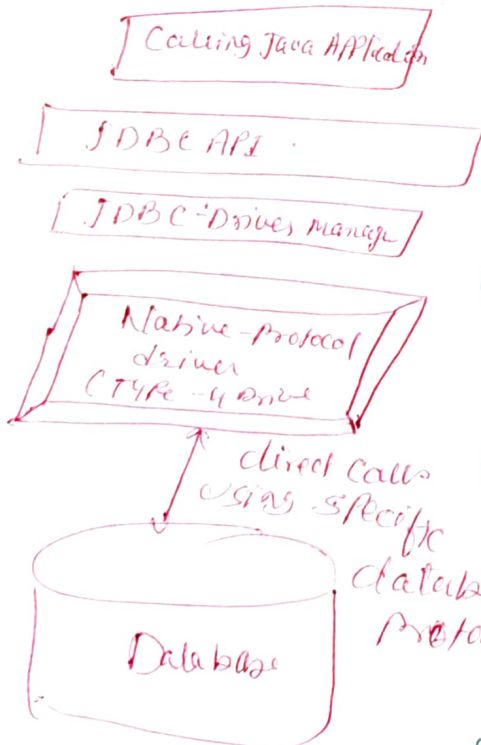 Calling Java Application
JDBC API
JDBC-Driver Manage
Native-Protocol
driver
(TYPE-4 Drive
direct calls
using specific
databa
Proto
Database